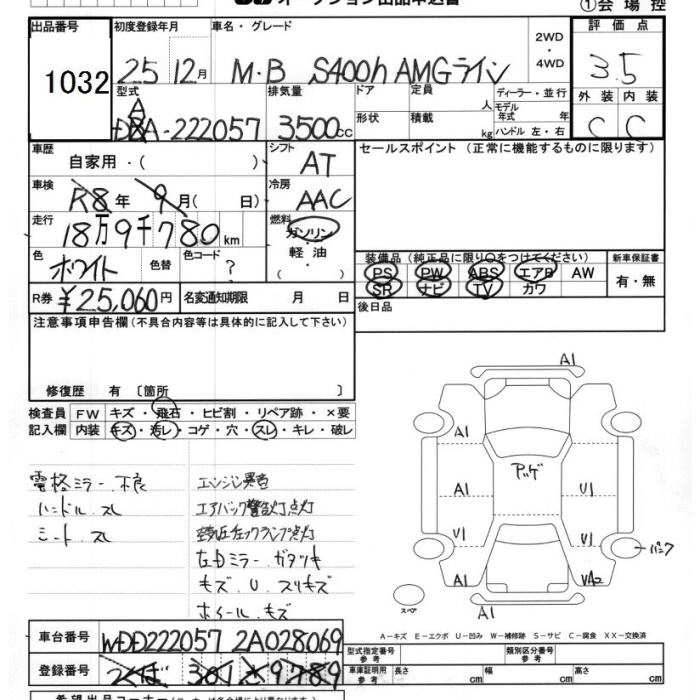 オークション出品申込書
①会場控
出品番号 1032
初度登録年月 25 12月
車名・グレード M・B S400h AMGライン
2WD・4WD
評価点 3.5
型式 DAA-222057
排気量 3500cc
ドア 形状
定員 人
積載 kg
ディーラー・並行
モデル年式 年
ハンドル 左・右
外装 内装
C C
車歴 自家用・( )
シフト AT
セールスポイント (正常に機能するものに限ります)
車検 R8年 9月( 日)
冷房 AAC
走行 18万9千780km
燃料 ガソリン・軽・油( )
色 ホワイト 色替
色コード ?
装備品 (純正品に限り○をつけてください)
新車保証書
PS PW ABS エアB AW
有・無
SR ナビ TV カワ
R券 ¥25,060円
名変通知期限 月 日
後日品
注意事項申告欄(不具合内容等は具体的に記入して下さい)
修復歴 有 〔箇所 〕
検査員記入欄
FW キズ・飛石・ヒビ割・リペア跡・×要
内装 キズ・汚レ・コゲ・穴・スレ・キレ・破レ
電格ミラー.不良
ハンドル.スレ
シート.スレ
エンジン異音
エアバック警告灯点灯
左Dミラー.ガタツキ
キズ.U.スリキズ
ホイール.キズ
A1
A1
アッゲ
A1 U1
U1 U1
パンク
A1 UA2
スペア
A1
A-キズ E-エクボ U-凹み W-補修跡 S-サビ C-腐食 XX-交換済
車台番号 WDD222057 2A028069
登録番号 つくば 301 そ 9789
型式指定番号 参考
類別区分番号 参考
車庫証明用 参考 長さ cm 幅 cm 高さ cm
希望出品コーナー